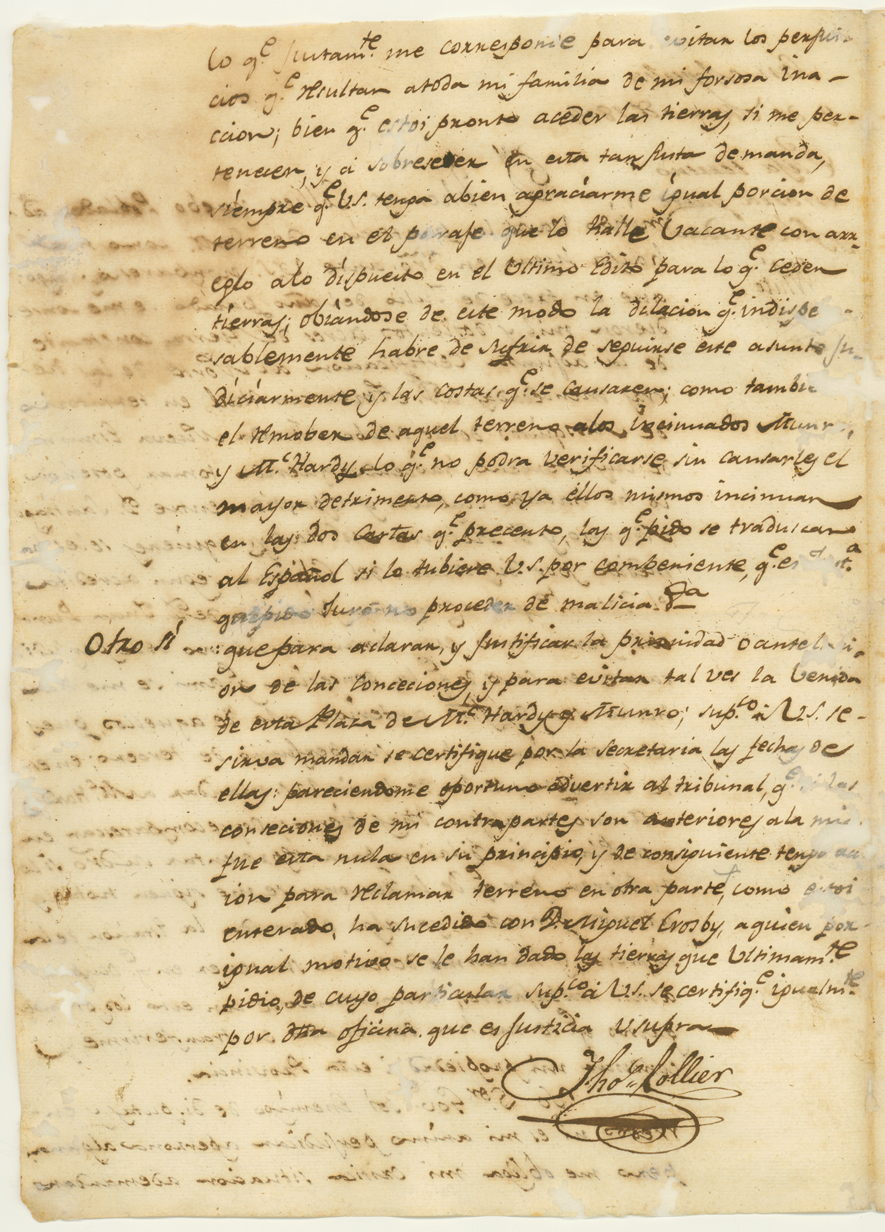 lo q.e Justam.te me corresponde para evitar los perjui-
cios q.e resultan atoda mi familia de mi forsosa ina-
ccion; bien q.e estoi pronto aceder las tierras, si me per-
tenecen, y a sobreseder en esta tan Justa demanda,
siempre q.e U.S. tenga abien agraciarme igual porcion de
terreno en el parage que lo halle Vacante con arr-
eglo alo dispuesto en el Ultimo Edito para lo q.e ceden
tierras; obiandose de este modo la dilacion q.e indispe
sablemente habre de sufrir de seguirse este asunto Ju-
diciarmente y las costas q.e se causaren; como tambi
el remober de aquel terreno alos incinuados Munr
y M.c Hardy, lo q.e no podra verificarse sin causarles el
mayor detrimento, como ya ellos mismos incinuan
en las dos Cartas q.e precento, las q.e pido se traduscan
al Español si lo tubiere U.S. por combeniente, q.e es
que pido Juro no proceder de malicia &.a
Otro si
que para aclarar, y Justificar la prioridad o anteri-
or de las Conceciones, y para evitar tal ves la Venida
de esta Plaza de M.c Hardy y Munro; sup.co a U.S. se-
sirva mandar se certifique por la secretaria las fechas de
ellas: pareciendome oportuno advertir al tribunal, q.e si las
conseciones de mi contrapartes son anteriores ala mia
fue esta nula en su principio, y de consiguiente tengo ac
ion para reclamar terreno en otra parte, como estoi
enterado, ha sucedido con D. Miguel Crosby, a quien por
igual motivo se le han dado las tierras que Ultimam.te
pidio, de cuyo particular sup.co a U.S. se certifiq.e igualm.te
por dha oficina que es Justicia Vt supra
Tho.s Collier